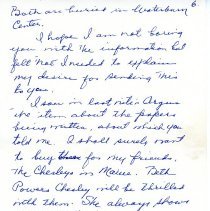 6
Both are buried in Waterbury
Center.
I hope I am not boring
you with this information but
felt that I needed to explain
my desire for sending this
to you.
I saw in last nite's Argus
the item about the papers
being written, about which you
told me. I shall surely want
to buy for my friends,
the Chesleys in Maine. Beth
Powers Chesley will be thrilled
with them. She always shows